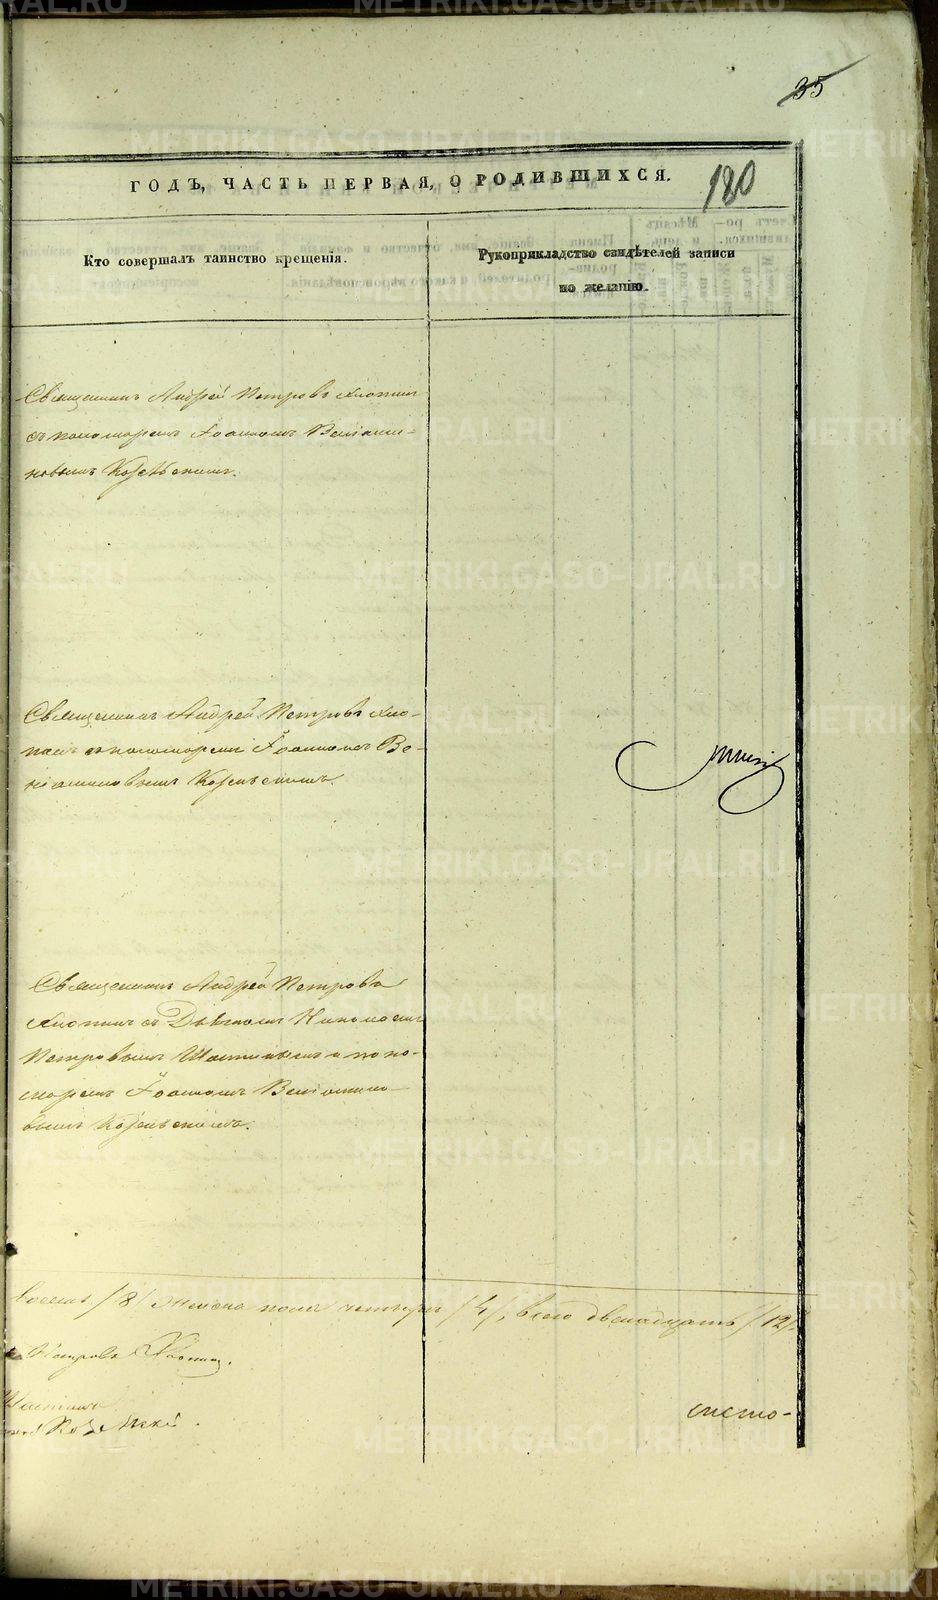 35
ГОДЪ, ЧАСТЬ ПЕРВАЯ, О РОДИВШИХСЯ.
180
Кто совершалъ таинство крещенія.
Рукоприкладство свидѣтелей записи
по желанію.
Священникъ Андрей Петровъ Хлопин
съ пономаремъ Іоанномъ Веніами-
новымъ Козельскимъ.
Священникъ Андрей Петровъ Хло-
пинъ съ пономаремъ Іоанномъ Ве-
ніаминовымъ Козельскимъ
Священникъ Андрей Петровъ
Хлопинъ съ Дьякономъ Николаемъ
Петровымъ и поно-
маремъ Іоанномъ Веніамино-
вымъ Козельскимъ.
восемь /8/ женска пола четыре /4/, всего двенадцать /12/
Петровъ Хлопинъ.
Козельскій.
METRIKI.GASO-URAL.RU